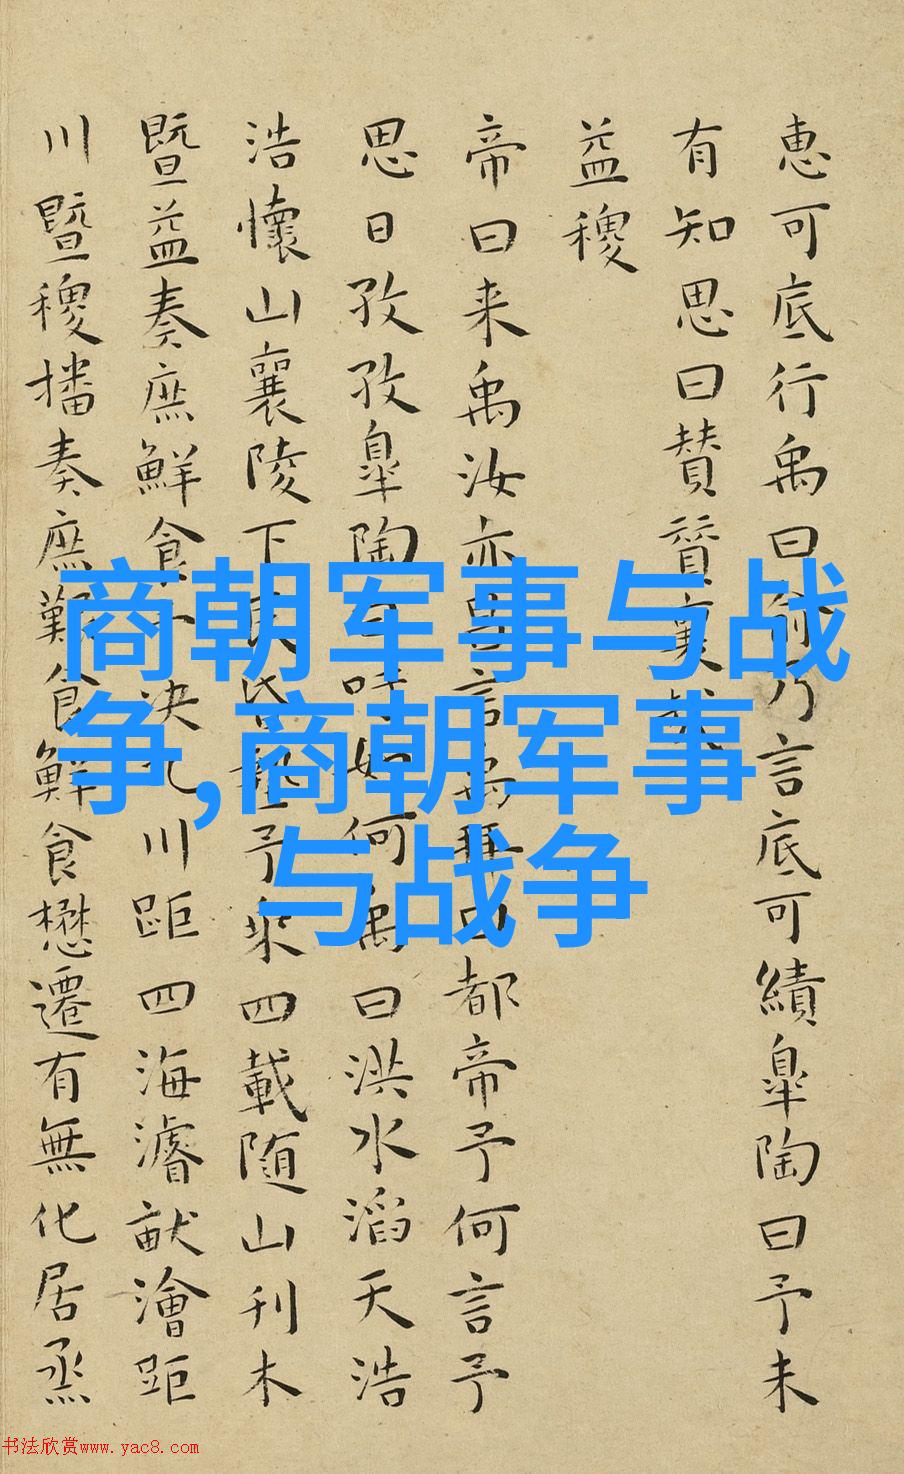 恵可底行禹曰俞乃言底可績皐陶曰予未
有知思曰賛賛襄哉
益稷
帝曰来禹汝亦昌言禹拜曰都帝予何言予
思日孜孜皐陶曰吁如何禹曰洪水滔天浩
浩懷山襄陵下民昏墊予乘四載随山刊木
暨益奏庶鮮食予決九川距四海濬畎澮距
川暨稷播奏庶艱食鮮食懋遷有無化居烝
商朝军事与战
争,商朝军事
与战争
书法欣赏www.yac8.com